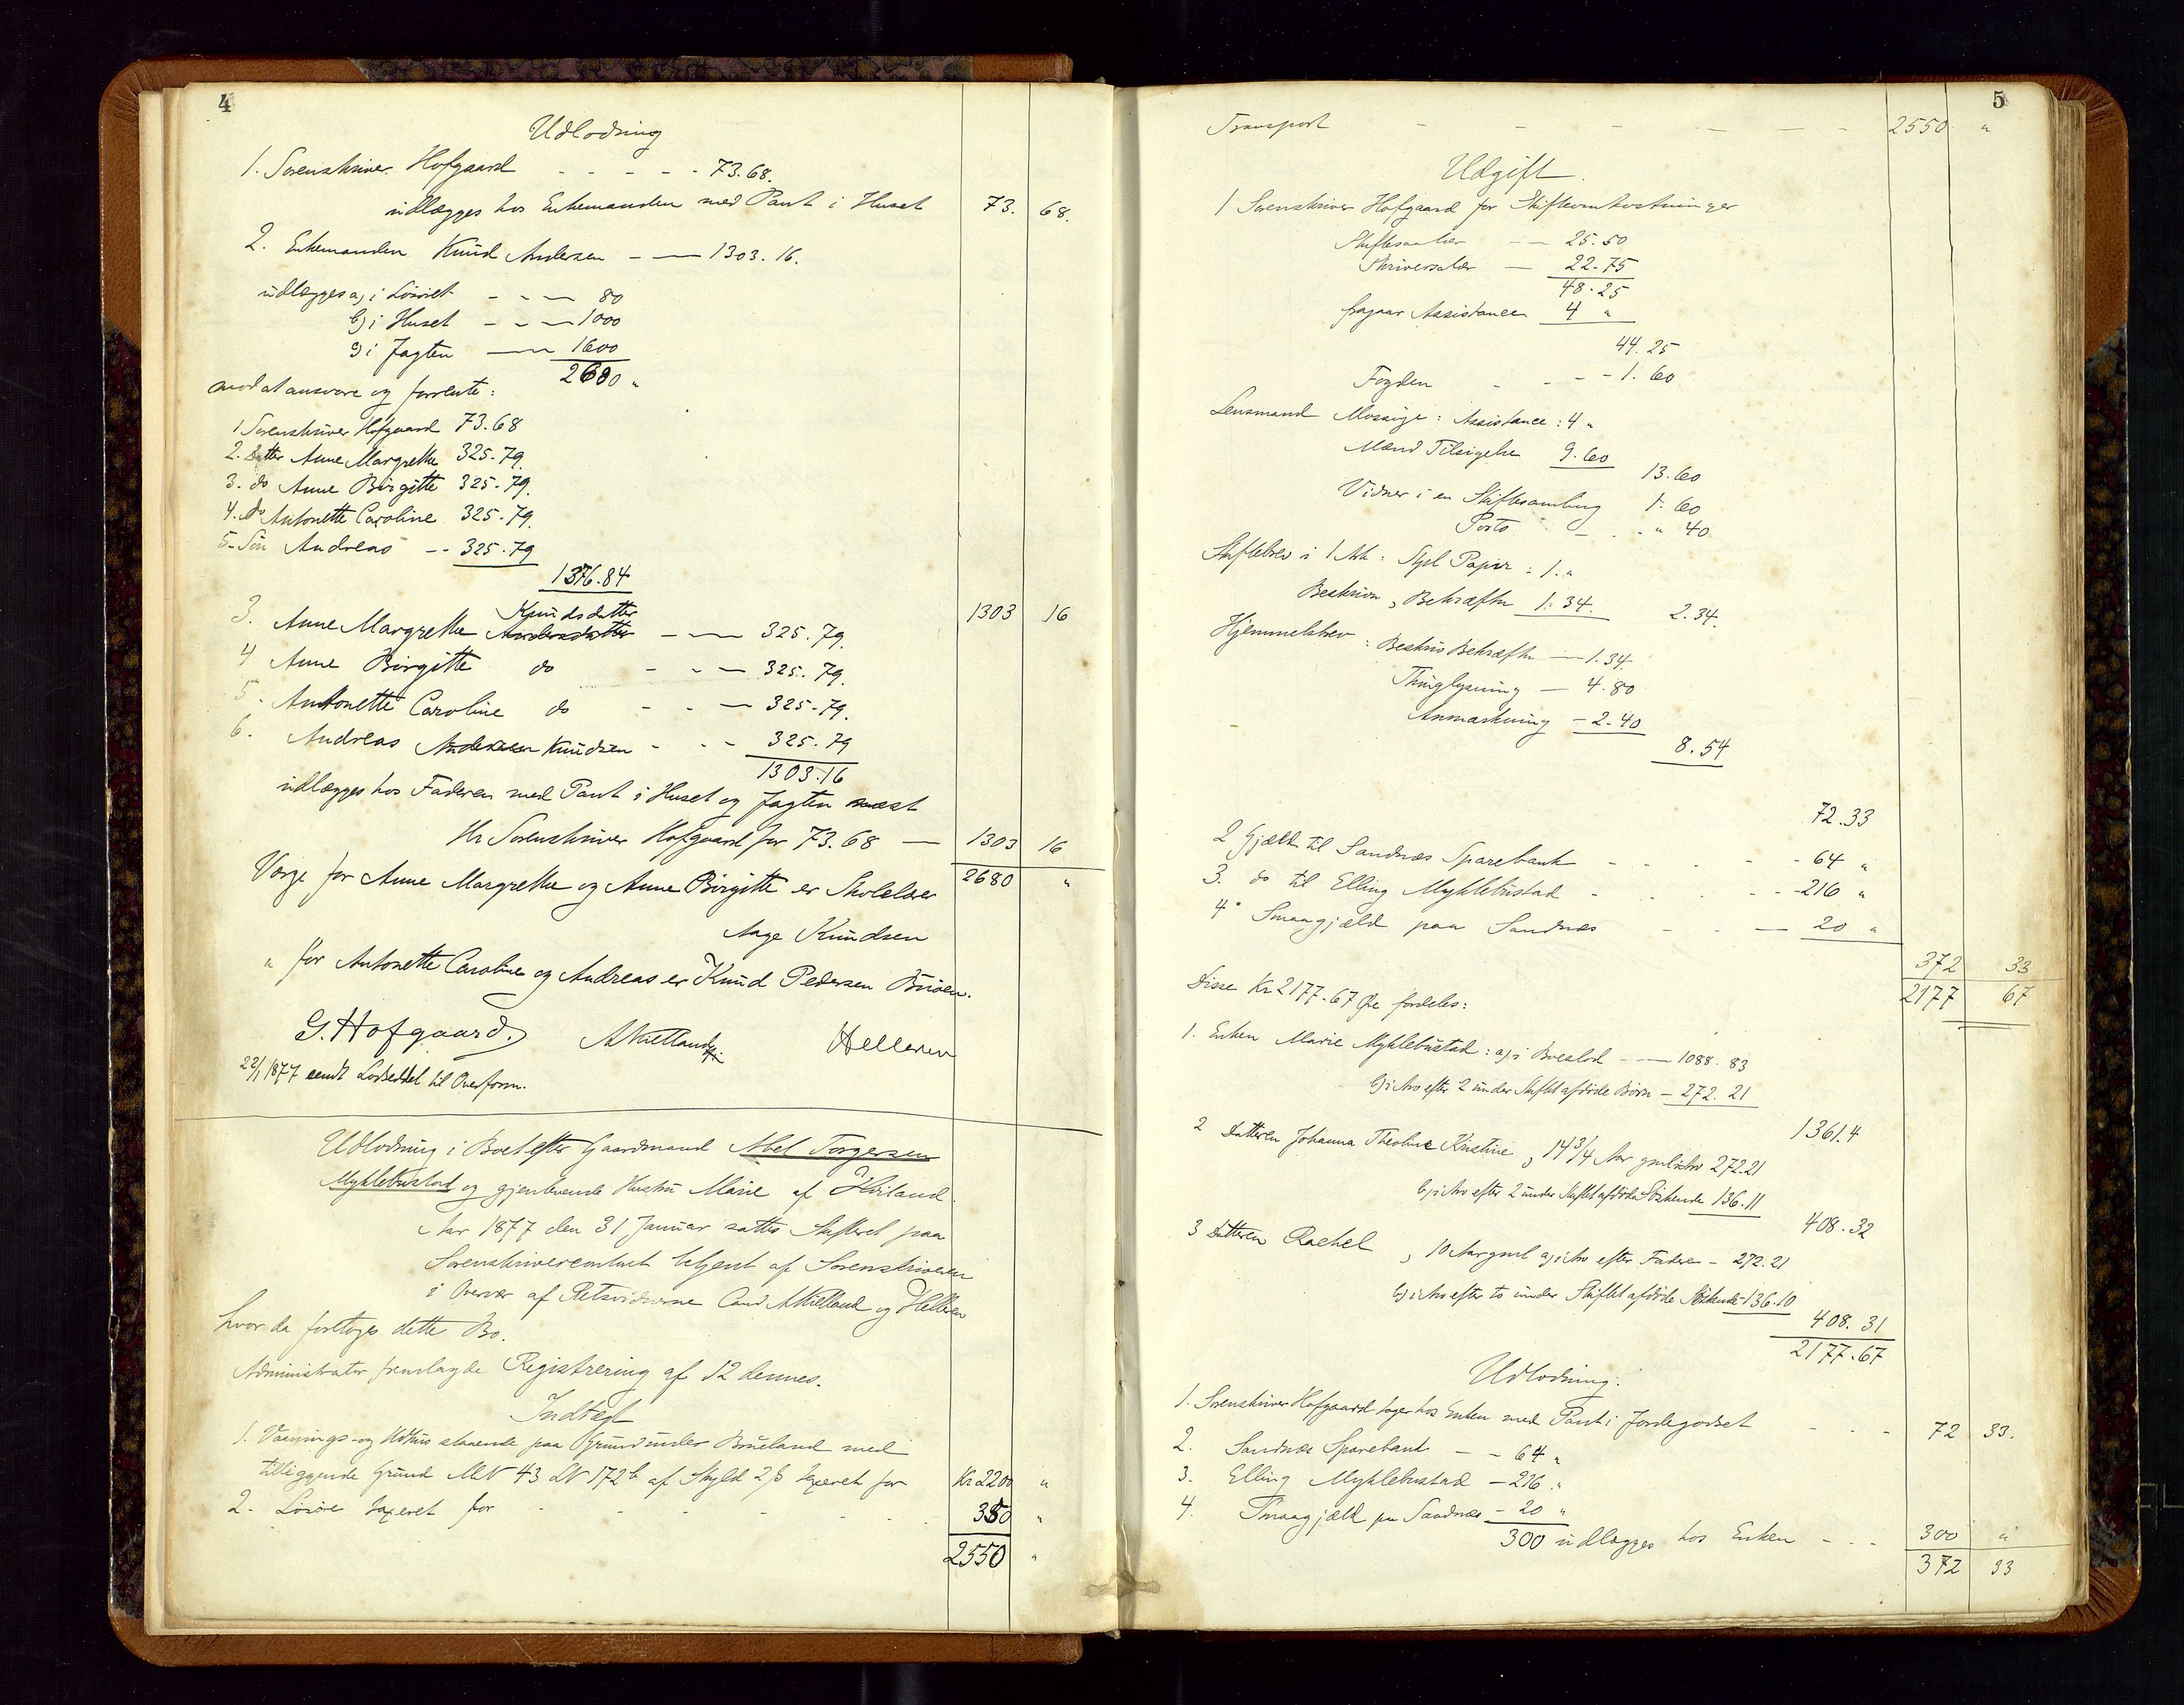 4
Udlodning
1. Sorenskriver Hofgaard - - - - - 73.68.
udlægges hos Enkemanden med Pant i Huset 73. 68.
2. Enkemanden Knud Andersen - - 1303.16.
udlægges a) i Løsøret - - - 80
b) i Huset - - - 1000
c) i Jagten - - 1600
2680 "
mod at ansvare og forrente:
1 Sorenskriver Hofgaard 73.68
2. Datter Anne Margrethe 325.79.
3. do Anne Birgitte 325.79.
4. do Antonette Caroline 325.79.
5. Søn Andreas -- 325.79
1376.84
1303 16
Knudsdatter
3. Anne Margrethe Andersdatter - - 325.79.
4 Anne Birgitte do - - - 325.79.
5. Antonette Caroline do - - - 325.79.
6. Andreas Andersen Knudsen - - - 325.79
1303.16
udlægges hos Faderen med Pant i Huset og Jagten næst
Hr Sorenskriver Hofgaard for 73.68 - 1303 16
2680 "
Værge for Anne Margrethe og Anne Birgitte er Skolelærer
Aage Knudsen
" for Antonette Caroline og Andreas er Knud Pedersen Bøen.
G. Hofgaard. AKielland Helleren
22/1 1877 sendt Lodseddel til Overform.
Udlodning i Boet efter Gaardmand Abel Torgersen
Myklebustad og gjenlevende Hustru Marie af Høiland.
Aar 1877 den 31 Januar sattes Skifteret paa
Sorenskrivercontoret betjent af Sorenskriveren
i Overvær af Retsvidnerne Cand AKielland og Helleren
hvor da foretoges dette Bo.
Administrator fremlagde Registrering af 12 dennes.
Indtægt
1. Vaanings- og Udhus staaende paa Grund under Brueland med
tilliggende Grund MN 43 LN 172b af Skyld 2 ß taxeret for Kr 2200 "
2. Løsøre taxeret for - - - - - - 350 "
2550 "
5
Transport - - - - - - 2550 "
Udgift.
1 Sorenskriver Hofgaard for Skifteomkostninger
Skiftesalær - - 25.50
Skriversalær - 22.75
48.25
fragaar Assistancen 4 "
44.25
Fogden - - - - 1.60
Lensmand Mossige: Assistance: 4 "
Mænd Tilsigelse 9.60
13.60
Vidner i en Skiftesamling 1.60
Porto - - " 40
Skiftebrev i 1 Ark: Stpl Papir: 1. "
Beskrivn, Bekræftn 1.34.
2.34.
Hjemmelsbrev: Beskriv Bekræftn - 1.34.
Thinglysning - 4.80
Anmærkning - 2.40
8.54
72.33
2 Gjæld til Sandnæs Sparebank - - - - - 64 "
3. do til Elling Myklebustad - - - - - 216 "
4. Smaagjæld paa Sandnæs - - - 20 "
372 33
2177 67
Disse Kr 2177.67 Øre fordeles:
1. Enken Marie Myklebustad: a) i Boeslod - - 1088.83
b) i Arv efter 2 under Skiftet afdøde Børn - 272.21
1361.4
2 Datteren Johanna Theoline Kristine, 14 3/4 Aar gml i Arv 272.21
b) i Arv efter 2 under Skiftet afdøde Søskende 136.11
408.32
3 Datteren Rachel, 10 Aar gml a) i Arv efter Faderen - 272.21
b) i Arv efter to under Skiftet afdøde Søskende 136.10
408.31
2177.67
Udlodning:
1. Sorenskriver Hofgaard tager hos Enken med Pant i Jordegodset - - - 72 33.
2. Sandnæs Sparebank - - 64 "
3. Elling Myklebustad - 216 "
4. Smaagjæld paa Sandnæs - 20 "
300 udlægges hos Enken - - - 300 "
372 33